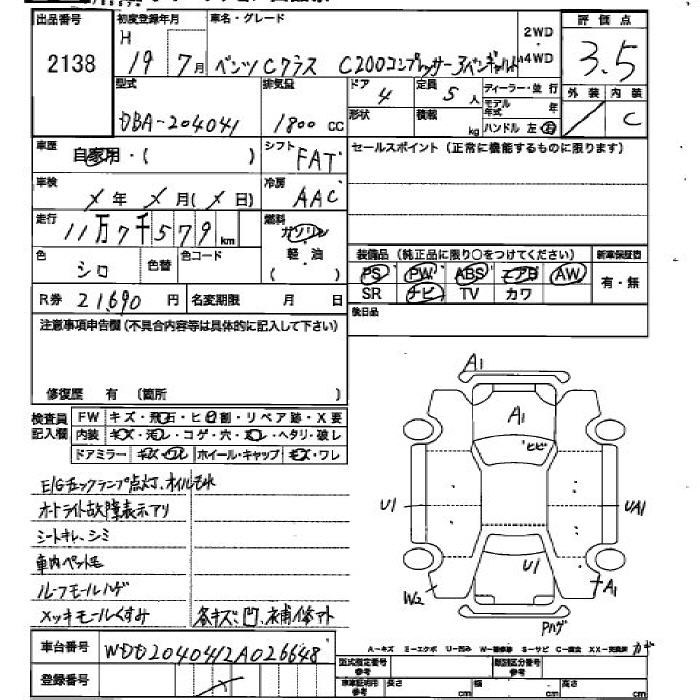 出品番号 初度登録年月 車名・グレード 2WD 評価点
2138 H 19年 7月 ベンツ Cクラス C200コンプレッサーアバンギャルド 4WD 3.5
型式 排気量 ドア 定員 ディーラー・並行 外装 内装
DBA-204041 1800 cc 4 5人 モデル年式 年 C
形状 積載 kg ハンドル 左 右
車歴 自家用・( ) シフト FAT セールスポイント (正常に機能するものに限ります)
車検 ×年 ×月(×日) 冷房 AAC
走行 11万7千579km 燃料 ガソリン
軽・油
( )
色 シロ 色替 色コード
装備品 (純正品に限り○をつけてください) 新車保証書
PS PW ABS エアB AW 有・無
SR ナビ TV カワ
R券 21,690円 名変期限 月 日
後日品
注意事項申告欄(不具合内容等は具体的に記入して下さい)
修復歴 有 (箇所 )
検査員記入欄 FW キズ・飛石・ヒビ割・リペア跡・X要
内装 キズ・汚レ・コゲ・穴・スレ・ヘタリ・破レ
ドアミラー キズ・ワレ ホイール・キャップ キズ・ワレ
A1
A1
ヒビ
U1 UA1
U1
W2 A1
Pハゲ
E/Gチェックランプ点灯、オイルモレ
オートライト故障表示アリ
シートキレ、シミ
車内ペット毛
ルーフモールハゲ
メッキモールくすみ 各キズ、凹、補修アト
車台番号 WDD2040412A026648
登録番号 ×
A-キズ E-エクボ U-凹み W-補修跡 S-サビ C-腐食 XX-交換済
型式指定番号 参考 類別区分番号 参考
車検証記載 参考 長さ cm 幅 cm 高さ cm